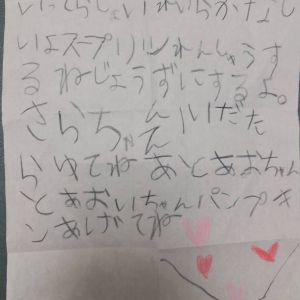 いってらっしゃいれいらかなし
いよスープリツれんしゅうす
るねじょうずにするよ。
さらちゃんいだた
らゆてねあとあおちゃん
とあおいちゃんパンプキ
ンあげてね